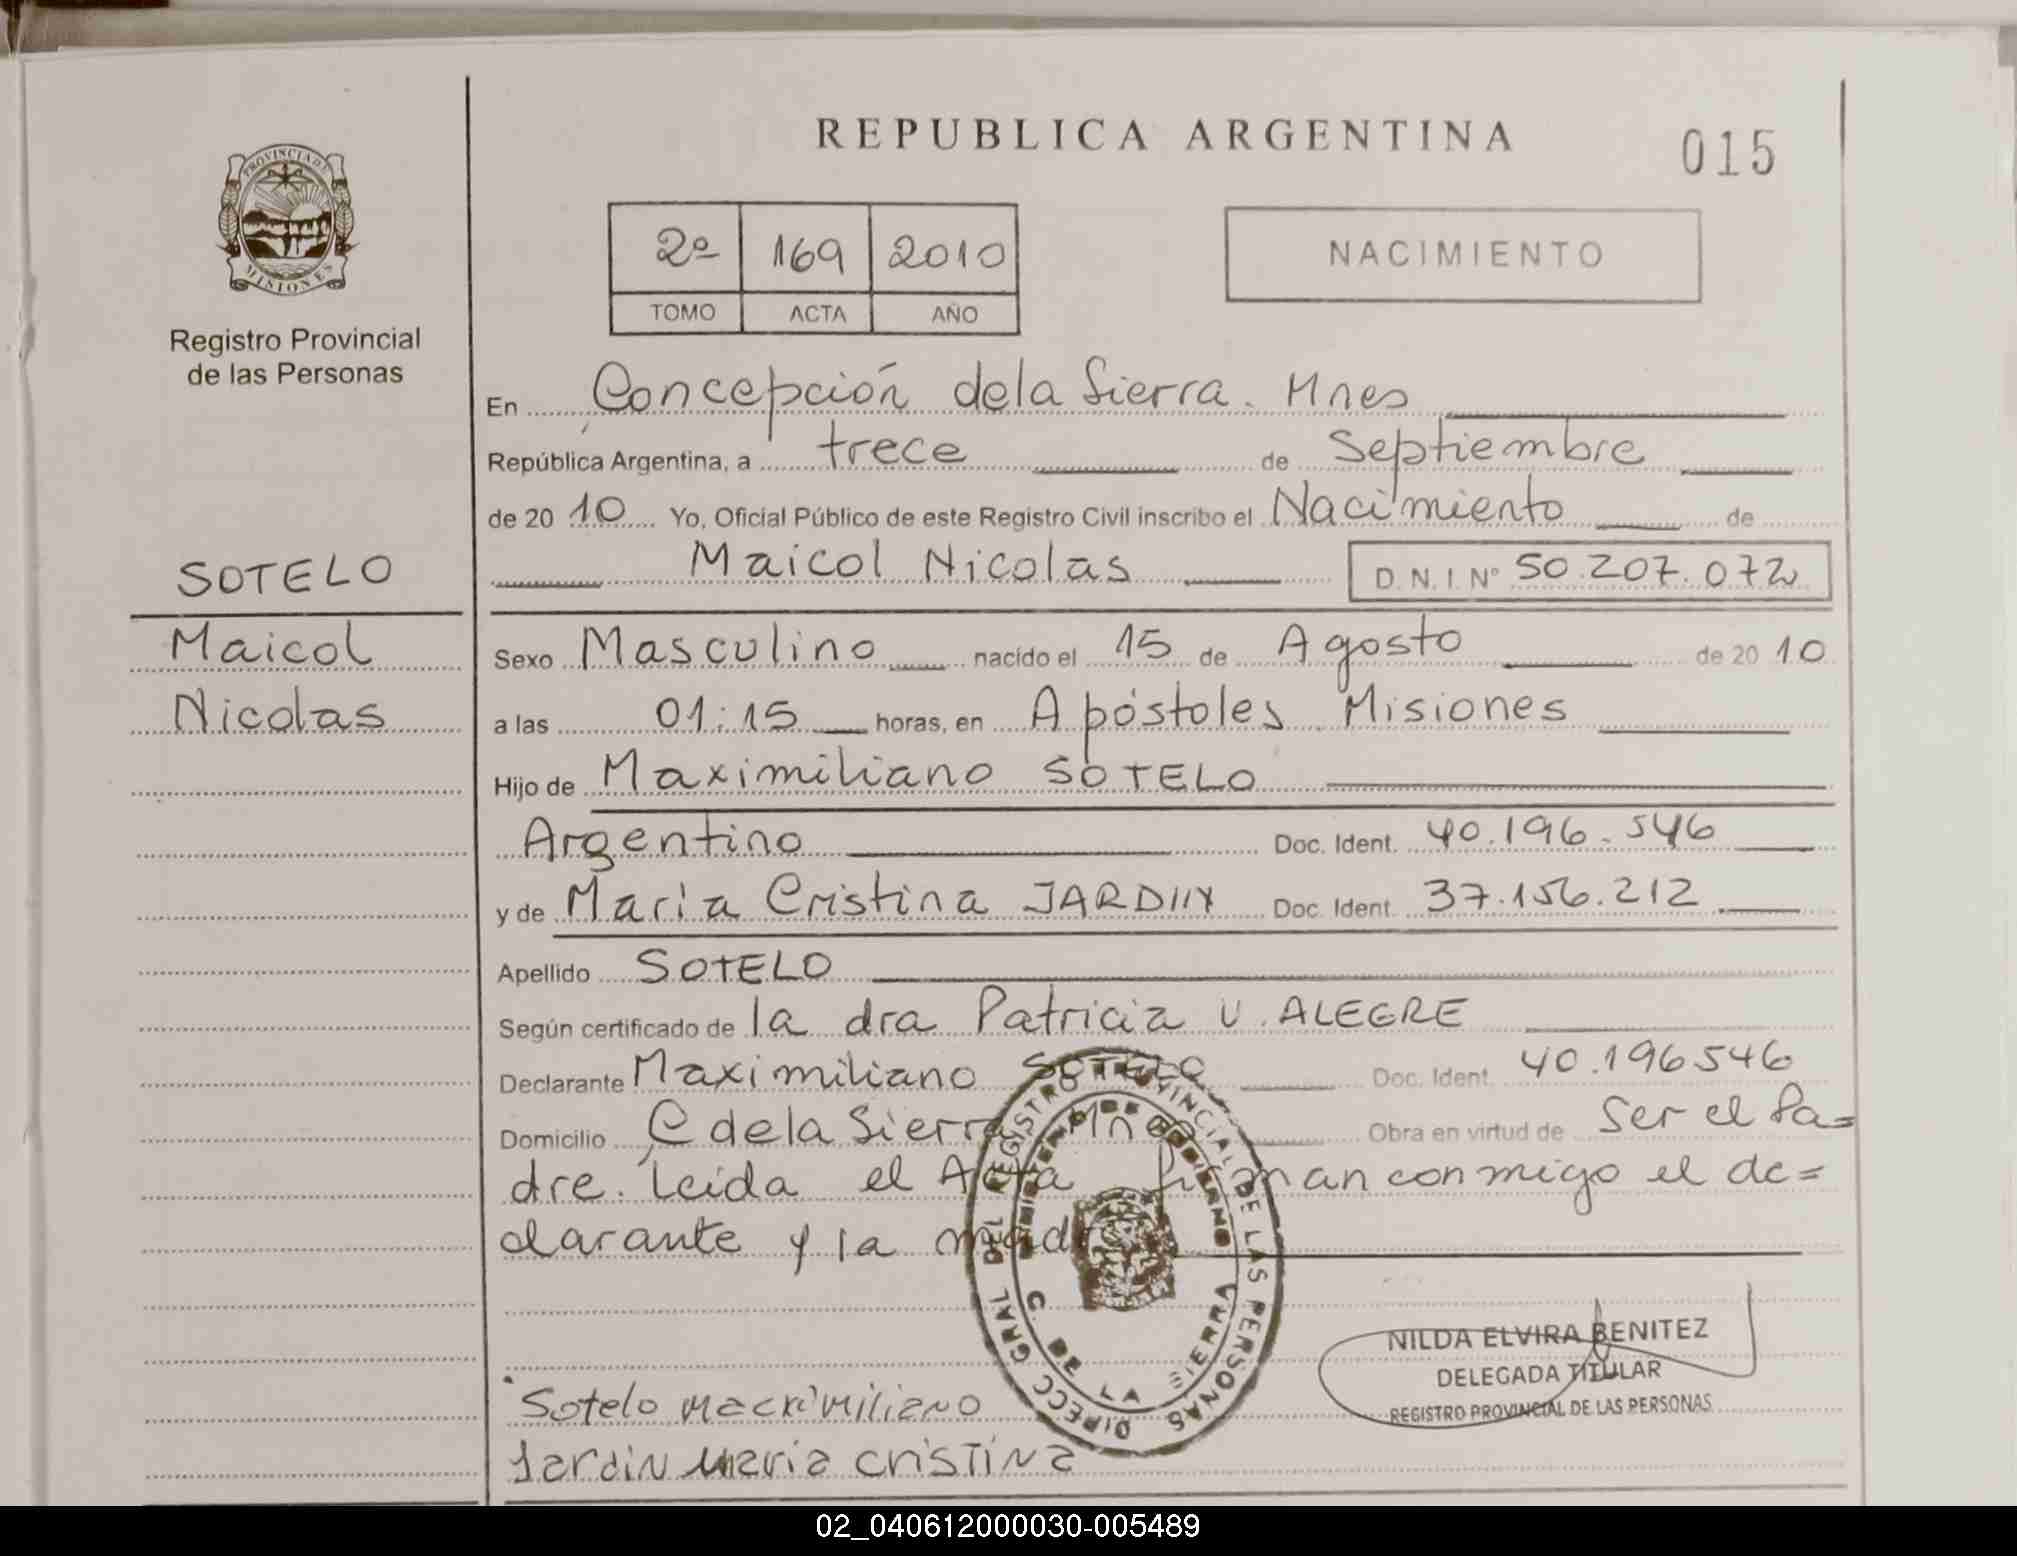 REPUBLICA ARGENTINA
015
PROVINCIA DE
MISIONES
Registro Provincial
de las Personas
2º 169 2010
TOMO ACTA AÑO
NACIMIENTO
En Concepción dela Sierra. Mnes
República Argentina, a trece de Septiembre
de 20 10 Yo, Oficial Público de este Registro Civil inscribo el Nacimiento de
Maicol Nicolas D.N.I. Nº 50.207.072
SOTELO
Maicol
Nicolas
Sexo Masculino nacido el 15 de Agosto de 20 10
a las 01:15 horas, en Apóstoles Misiones
Hijo de Maximiliano SOTELO
Argentino Doc. Ident. 40.196.546
y de María Cristina JARDIN Doc. Ident. 37.156.212
Apellido SOTELO
Según certificado de la dra Patricia V. ALEGRE
Declarante Maximiliano SOTELO Doc. Ident. 40.196546
Domicilio C dela Sierra Mnes Obra en virtud de Ser el Pa=
dre. Leída el Acta firman conmigo el de=
clarante y la madre
DIRECC GRAL DEL REGISTRO PROVINCIAL DE LAS PERSONAS
C. DE LA SIERRA
NILDA ELVIRA BENITEZ
DELEGADA TITULAR
REGISTRO PROVINCIAL DE LAS PERSONAS
Sotelo macximiliano
Jardin maria cristina
02_040612000030-005489